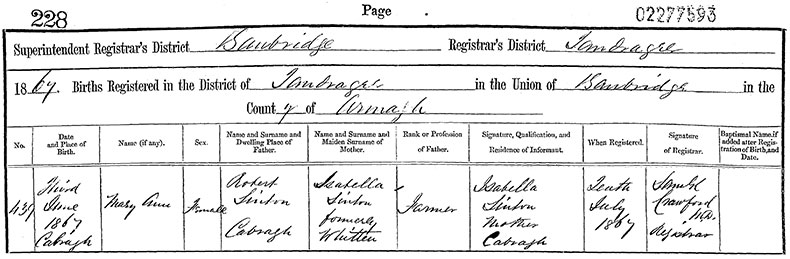 228 Page 02277593
Superintendent Registrar's District Banbridge Registrar's District Tandragee
1867. Births Registered in the District of Tandragee in the Union of Banbridge in the
County of Armagh
No. Date and Place of Birth. Name (if any). Sex. Name and Surname and Dwelling Place of Father. Name and Surname and Maiden Surname of Mother. Rank or Profession of Father. Signature, Qualification, and Residence of Informant. When Registered. Signature of Registrar. Baptismal Name, if added after Registration of Birth, and Date.
439 Third June 1867 Cabragh Mary Anne Female Robert Sinton Cabragh Isabella Sinton formerly Whitten Farmer Isabella Sinton Mother Cabragh Tenth July 1867 Saml Crawford M.D. Registrar